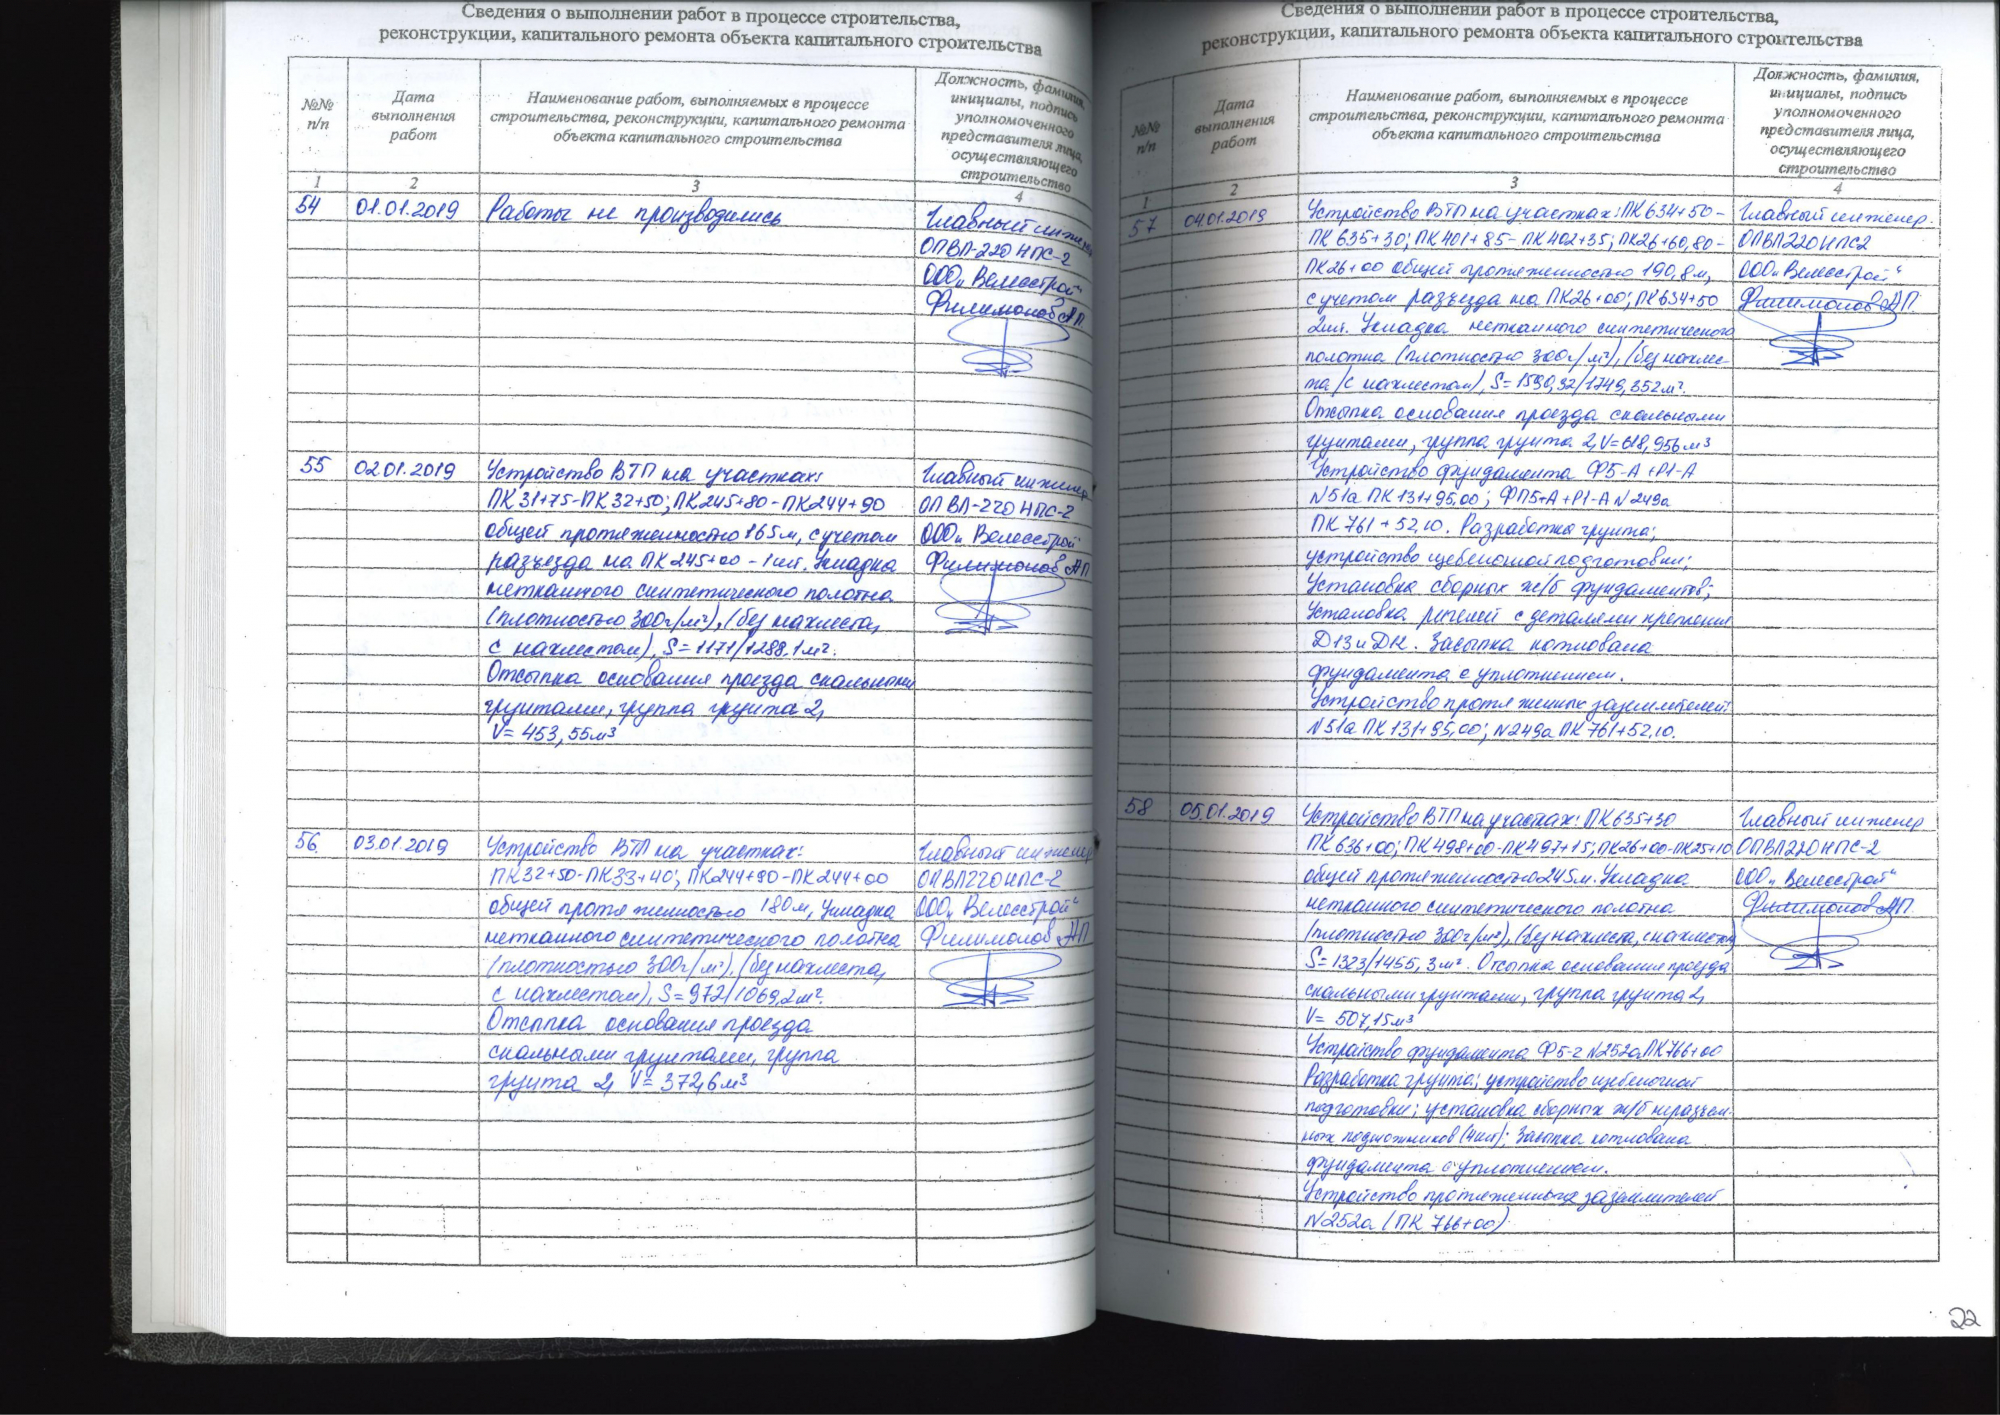 Сведения о выполнении работ в процессе строительства,
реконструкции, капитального ремонта объекта капитального строительства
№№ п/п
Дата выполнения работ
Наименование работ, выполняемых в процессе
строительства, реконструкции, капитального ремонта
объекта капитального строительства
Должность, фамилия,
инициалы, подпись
уполномоченного
представителя лица,
осуществляющего
строительство
1 2 3 4
54 01.01.2019 Работы не производились Главный инженер
ОПВЛ-220 НПС-2
ООО „Велесстрой"
Филимонов А.П.
55 02.01.2019 Устройство ВТП на участках: Главный инженер
ПК31+75-ПК32+50; ПК245+80-ПК244+90 ОПВЛ-220 НПС-2
общей протяженностью 165м, с учетом ООО „Велесстрой
разъезда на ПК245+00 - 1шт. Укладка Филимонов АП
нетканного синтетического полотна
(плотностью 300г/м²), (без нахлеста,
с нахлестом), S=1171/1288,1м².
Отсыпка основания проезда скальными
грунтами, группа грунта 2,
V=453,55м³
56. 03.01.2019 Устройство ВТП на участках: Главный инженер
ПК32+50-ПК33+40; ПК244+90-ПК244+00 ОПВЛ220НПС-2
общей протяженностью 180м, Укладка ООО „Велесстрой"
нетканного синтетического полотна Филимонов А.П
(плотностью 300г/м²), (без нахлеста,
с нахлестом), S=972/1069,2м².
Отсыпка основания проезда
скальными грунтами, группа
грунта 2, V=372,6м³
Сведения о выполнении работ в процессе строительства,
реконструкции, капитального ремонта объекта капитального строительства
№№ п/п
Дата выполнения работ
Наименование работ, выполняемых в процессе
строительства, реконструкции, капитального ремонта
объекта капитального строительства
Должность, фамилия,
инициалы, подпись
уполномоченного
представителя лица,
осуществляющего
строительство
1 2 3 4
57 04.01.2019 Устройство ВТП на участках: ПК634+50- Главный инженер.
ПК635+30; ПК401+85-ПК402+35; ПК26+60,80- ОПВЛ220НПС2
ПК26+00 общей протяженностью 190,8м, ООО „Велесстрой"
с учетом разъезда на ПК26+00; ПК634+50 Филимонов АП.
2шт. Укладка нетканного синтетического
полотна (плотностью 300г/м²), (без нахлес-
та/с нахлестом), S=1590,32/1749,352м².
Отсыпка основания проезда скальными
грунтами, группа грунта 2, V=618,956м³
Устройство фундамента Ф5-А+Р1-А
N51а ПК131+95,00; ФП5+А+Р1-А N249а
ПК761+52,10. Разработка грунта;
устройство щебеночной подготовки;
Установка сборных ж/б фундаментов;
Установка ригелей с деталями крепления
Д13 и Д12. Засыпка котлована
фундамента с уплотнением.
Устройство протяженных заземлителей
N51а ПК131+95,00; N249а ПК761+52,10.
58 05.01.2019 Устройство ВТП на участках: ПК635+30 Главный инженер
ПК636+00; ПК498+00-ПК497+15; ПК26+00-ПК25+10 ОПВЛ220НПС-2
общей протяженностью 245м. Укладка ООО „Велесстрой"
нетканного синтетического полотна Филимонов АП.
(плотностью 300г/м²), (без нахлеста, с нахлестом)
S=1323/1455,3м². Отсыпка основания проезда
скальными грунтами, группа грунта 2,
V=507,15м³
Устройство фундамента Ф5-2 N252а ПК766+00
Разработка грунта; устройство щебеночной
подготовки; установка сборных ж/б неразъем-
ных подножников (4шт); Засыпка котлована
фундамента с уплотнением.
Устройство протяженных заземлителей
N252а (ПК 766+00)
22